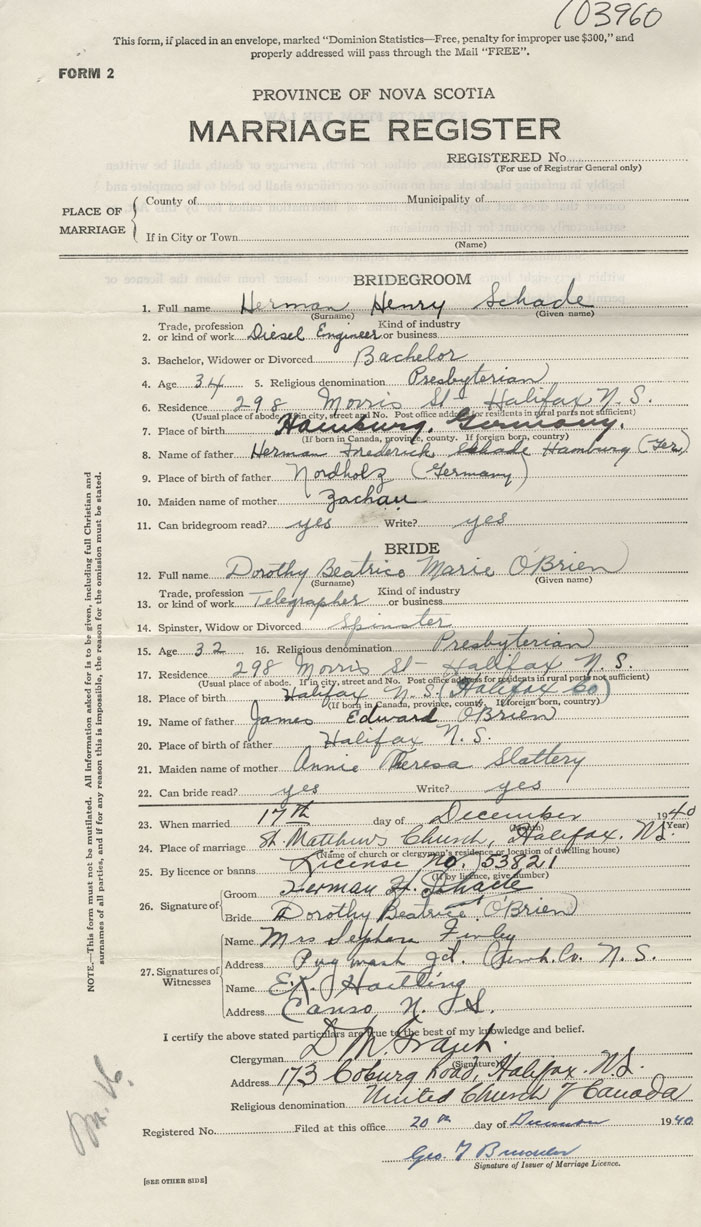 103960
This form, if placed in an envelope, marked "Dominion Statistics—Free, penalty for improper use $300," and
properly addressed will pass through the Mail "FREE".
FORM 2
PROVINCE OF NOVA SCOTIA
MARRIAGE REGISTER
REGISTERED No.
(For use of Registrar General only)
PLACE OF MARRIAGE
County of Municipality of
If in City or Town
(Name)
BRIDEGROOM
1. Full name Herman Henry Schade
(Surname) (Given name)
Trade, profession Kind of industry
2. or kind of work Diesel Engineer or business
3. Bachelor, Widower or Divorced Bachelor
4. Age 34 5. Religious denomination Presbyterian
6. Residence 298 Morris St - Halifax N.S.
(Usual place of abode. If in city, street and No. Post office address for residents in rural parts not sufficient)
7. Place of birth Hamburg, Germany.
(If born in Canada, province, county. If foreign born, country)
8. Name of father Herman Frederick Schade Hamburg (Ger)
9. Place of birth of father Nordholz (Germany)
10. Maiden name of mother Zachau
11. Can bridegroom read? yes Write? yes
BRIDE
12. Full name Dorothy Beatrice Marie O'Brien
(Surname) (Given name)
Trade, profession Kind of industry
13. or kind of work Telegrapher or business
14. Spinster, Widow or Divorced Spinster
15. Age 32 16. Religious denomination Presbyterian
17. Residence 298 Morris St - Halifax N.S.
(Usual place of abode. If in city, street and No. Post office address for residents in rural parts not sufficient)
18. Place of birth Halifax N.S. (Halifax Co)
(If born in Canada, province, county. If foreign born, country)
19. Name of father James Edward O'Brien
20. Place of birth of father Halifax N.S.
21. Maiden name of mother Annie Theresa Slattery
22. Can bride read? yes Write? yes
23. When married 17th day of December 1940
(Month) (Year)
24. Place of marriage St. Matthews Church, Halifax. N.S.
(Name of church or clergyman's residence or location of dwelling house)
25. By licence or banns License No. 53821
(If by licence, give number)
26. Signature of
Groom Herman H. Schade
Bride Dorothy Beatrice O'Brien
27. Signatures of Witnesses
Name Mrs Finley
Address Pugwash Jct. Cumb. Co. N.S.
Name E.K. Hartling
Address Canso N.S.
I certify the above stated particulars are true to the best of my knowledge and belief.
Clergyman D M Grant.
(Signature)
Address 173 Coburg Road, Halifax. N.S.
Religious denomination United Church of Canada
Registered No. Filed at this office 20th day of December 1940
Geo. T
Signature of Issuer of Marriage Licence.
[SEE OTHER SIDE]
NOTE.—This form must not be mutilated. All information asked for is to be given, including full Christian and
surnames of all parties, and if for any reason this is impossible, the reason for the omission must be stated.